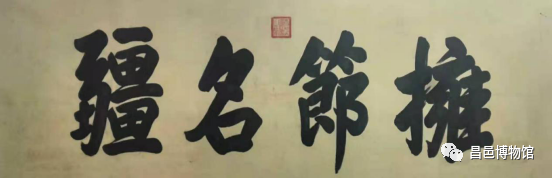 擁節名疆
昌邑博物馆